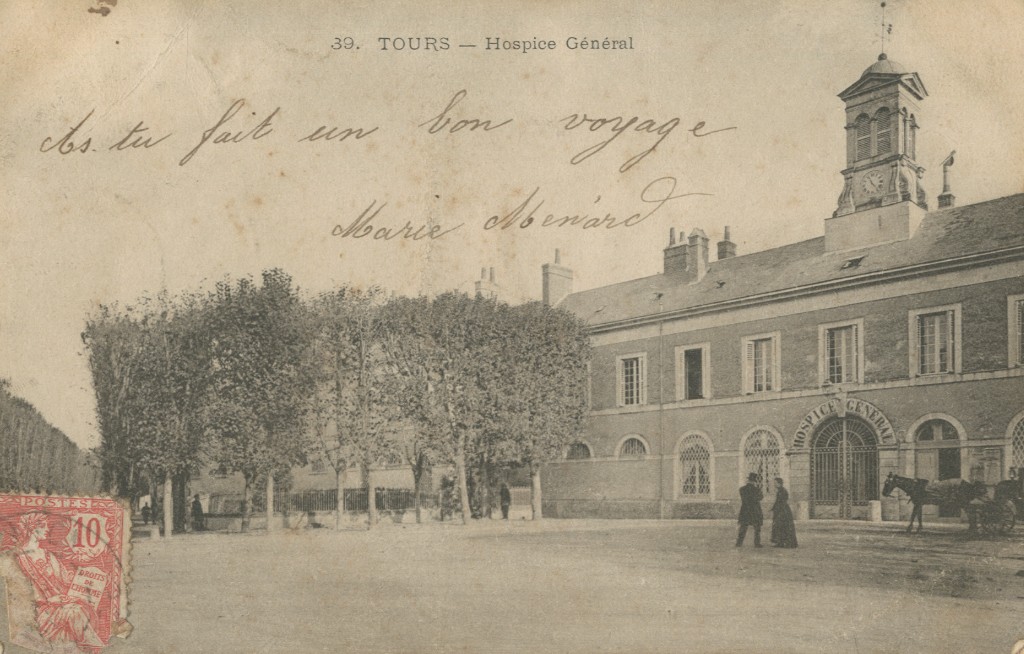 39. TOURS — Hospice Général
As-tu fait un bon voyage
Marie Menard
HOSPICE GÉNÉRAL
POSTES
10
DROITS
DE
L'HOMME